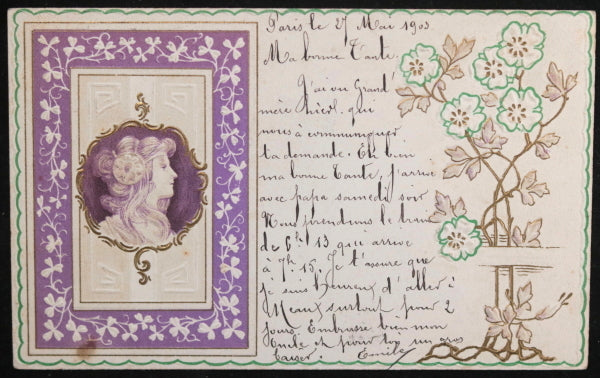 Paris le 27 Mai 1903
Ma bonne Tante
J'ai vu Grand'
mère hier qui
nous a communiquer
ta demande. Eh bien
ma bonne Tante, j'arrive
avec papa samedi soir
Nous prendrons le train
de 6h 13 qui arrive
à 7h 15. Je t'assure que
je suis heureux d'aller à
Meaux surtout pour 2
jours. Embrasse bien mon
Oncle et pour toi un gros
baiser. Emile